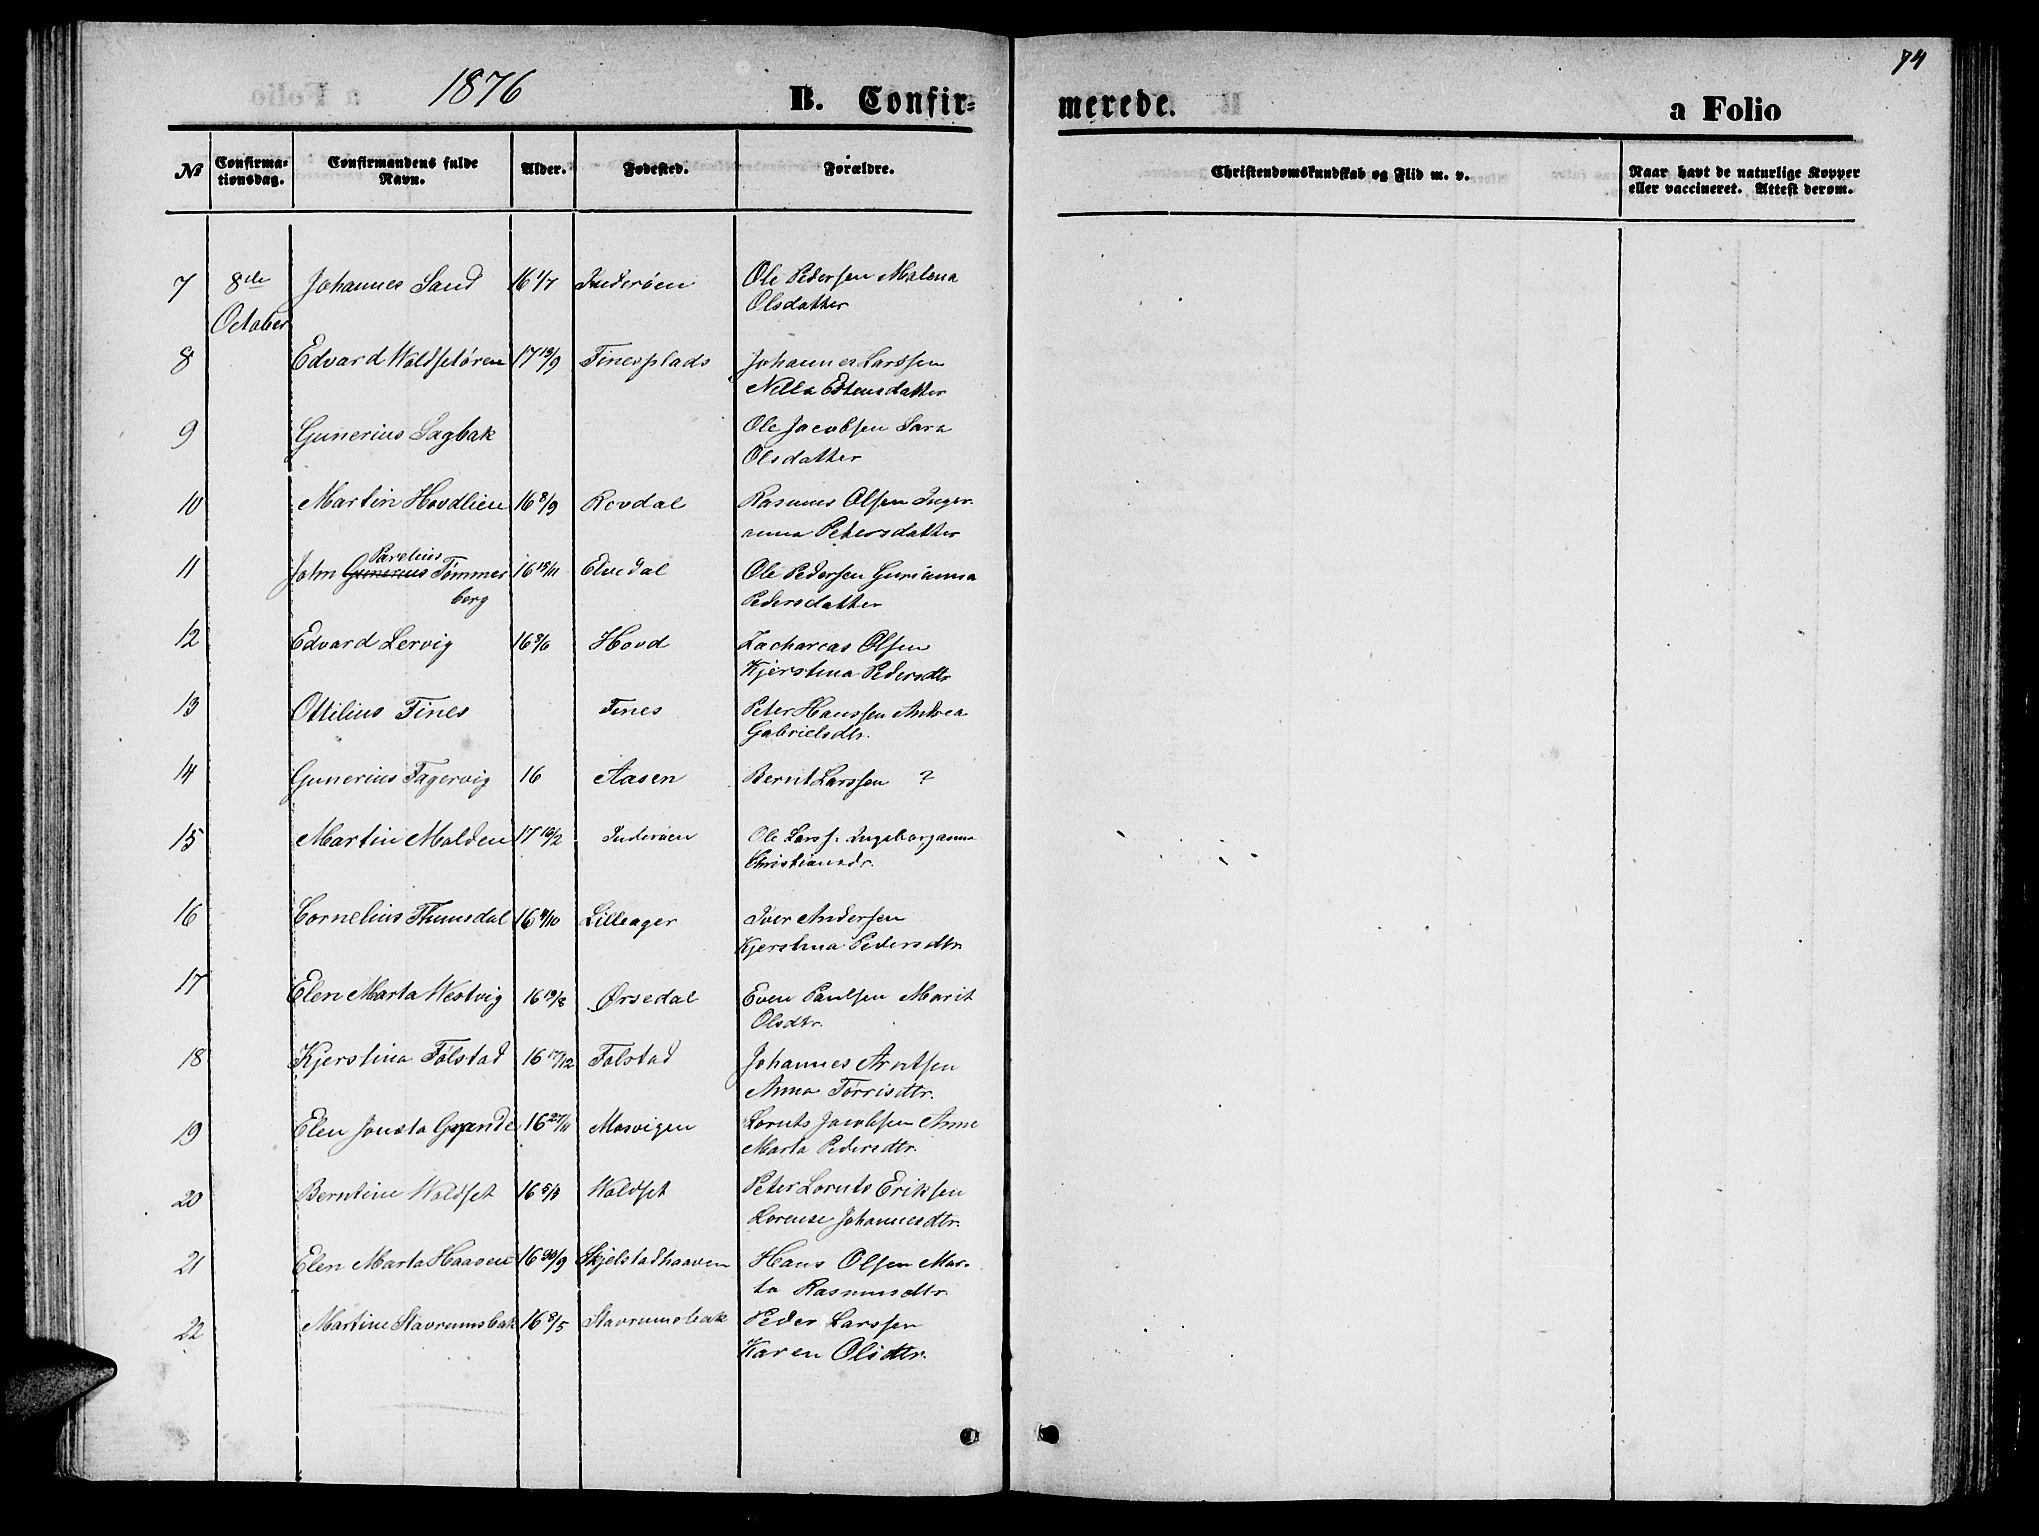 1876 B. Confir- merede. a Folio 74
№ Confirma-tionsdag. Confirmandens fulde Navn. Alder. Fødested. Forældre. Christendomskundskab og Flid m. v. Naar havt de naturlige Kopper eller vaccineret. Attest derom.
7 8de October Johannes Sand 16 1/7 Inderøen Ole Pedersen Malena
Olsdatter
8 Edvard Woldsetøren 17 13/9 Finesplads Johannes Larssen
Nilla Estensdatter
9 Gunerius Sagbak Ole Jacobsen Sara
Olsdatter
10 Martin Hovdlien 16 8/9 Rovdal Rasmus Olsen Inger
anna Petersdatter
11 John Gunerius Parelius Tømmer 16 18/11 Elvedal Ole Pedersen Gurianna
berg Pedersdatter
12 Edvard Lervig 16 9/6 Hovd Zacharcas Olsen
Kjerstina Pedersdtr
13 Ottilius Fines Fines Peter Hanssen Andrea
Gabrielsdtr.
14 Gunerius Fagervig 16 Aasen Bernt Larssen ?
15 Martin Molden 17 10/2 Inderøen Ole Larss. Ingeborganna
Christiansdr.
16 Cornelius Thunsdal 16 4/10 Lilleager Iver Andersen
Kjerstina Pedersdtr.
17 Elen Marta Westvig 16 19/8 Ørsedal Even Paulsen Marit
Olsdtr.
18 Kjerstina Følstad 16 17/12 Følstad Johannes Arntsen
Anna Torrisdtr.
19 Elen Joneta Grande 16 27/11 Mosvigen Loruts Jacobsen Anne
Marta Pedersdtr.
20 Berntine Woldset 16 5/3 Woldset Peter Loruts Eriksen
Lorense Johannesdtr.
21 Elen Marta Haaven 16 30/9 Skjelstadhaaven Hans Olsen Mar-
ta Rasmusdtr.
22 Martine Stavrumsbak 16 9/5 Stavrumsbak Peder Larssen
Karen Olsdtr.